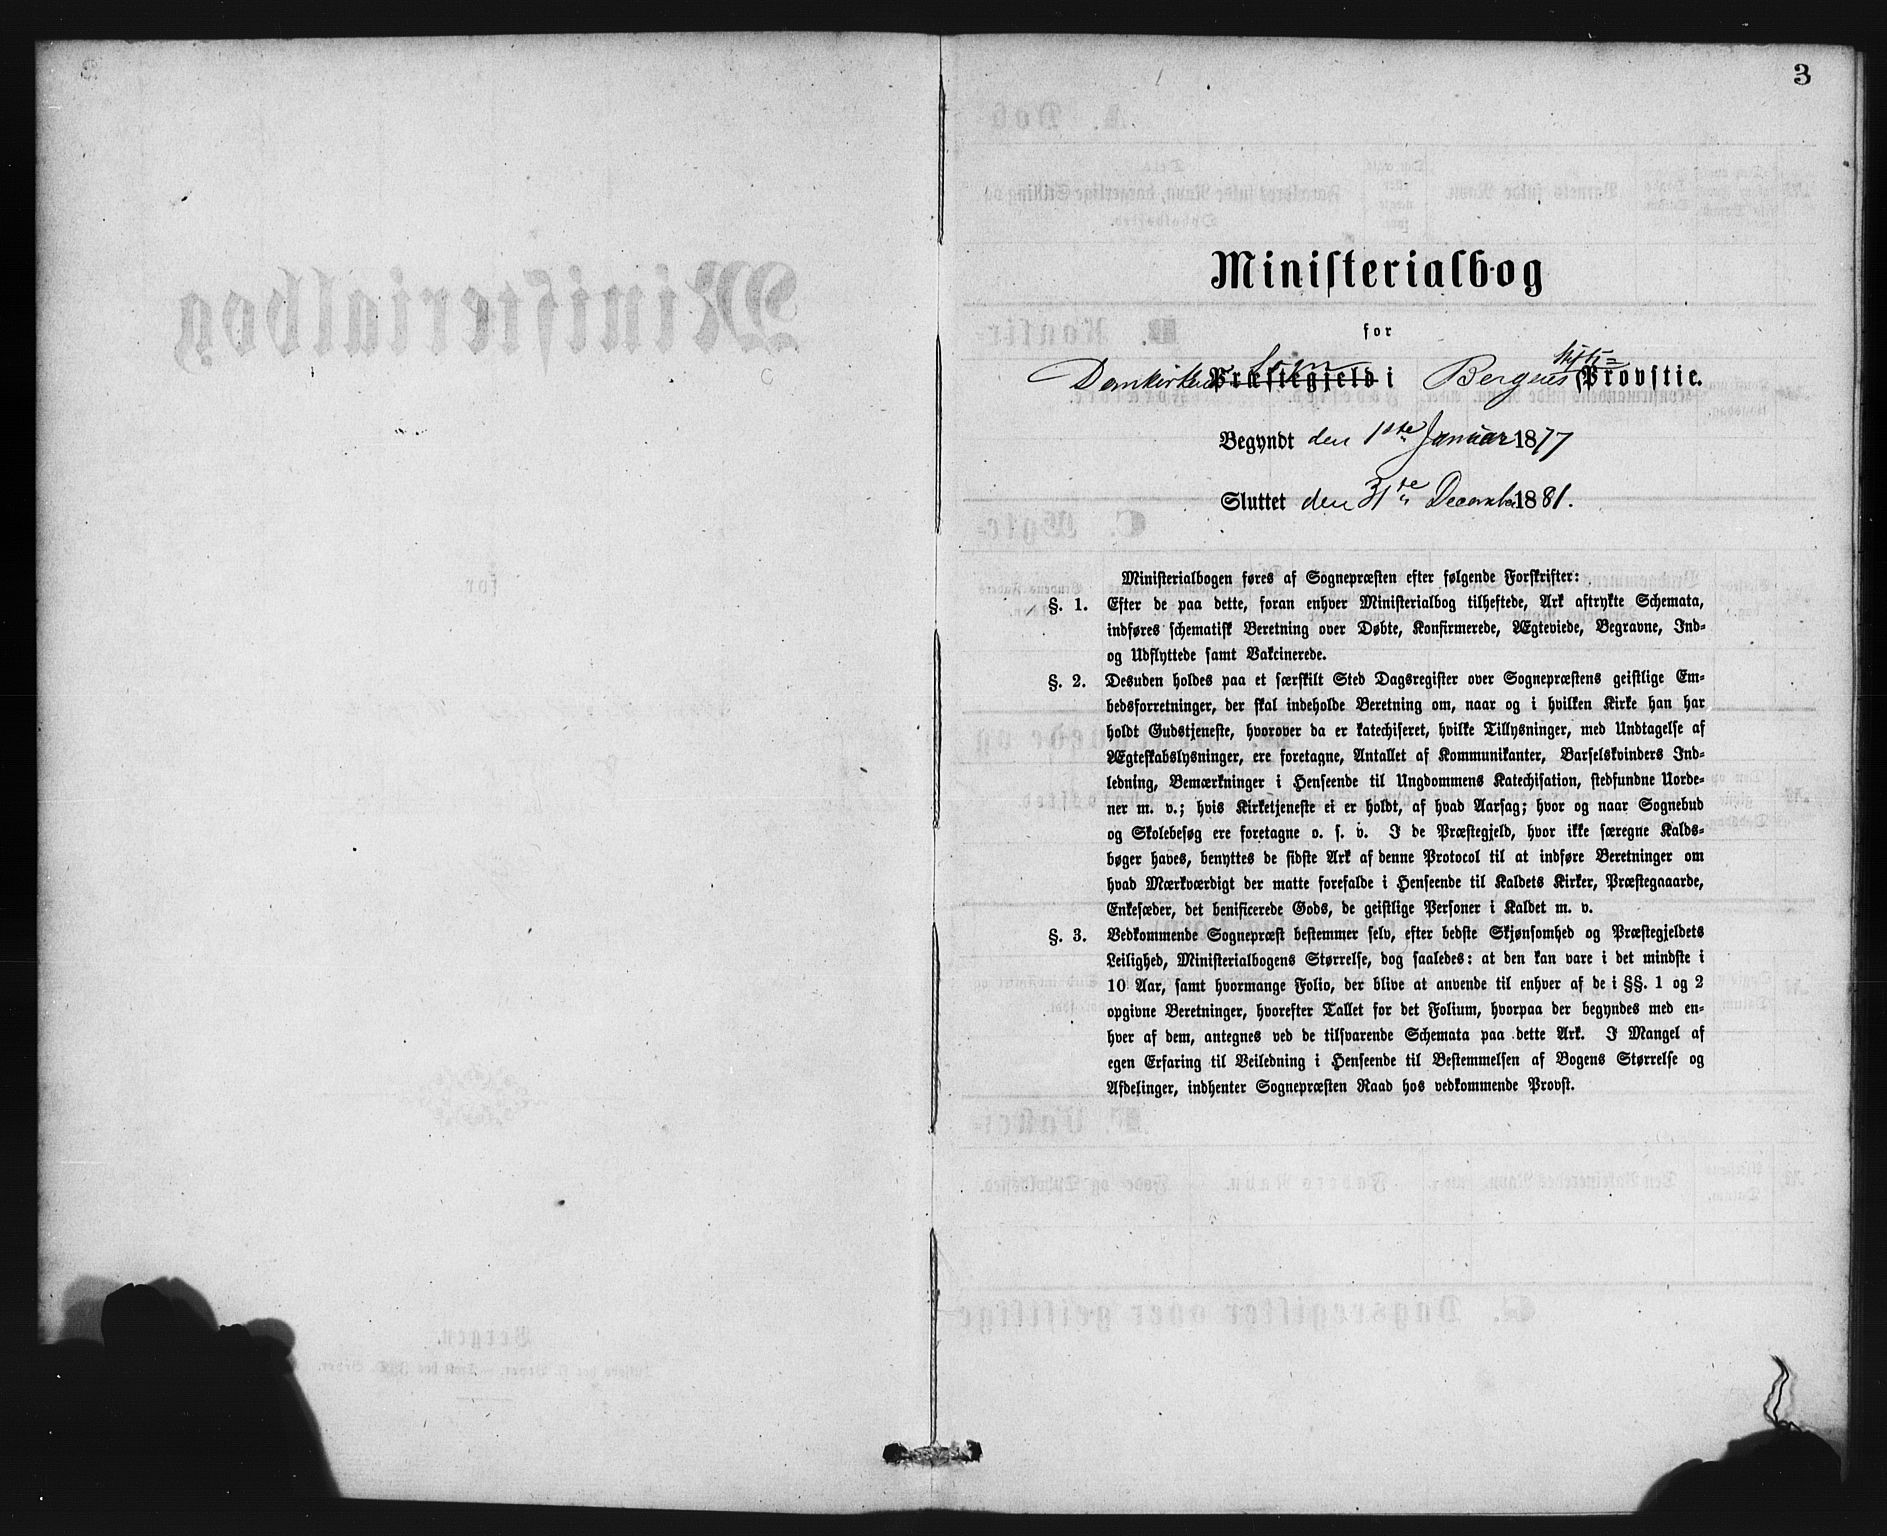 3
Ministerialbog
for
Domkirkens Sogn
Præstegjeld i Bergens Stifts= Provstie.
Begyndt den 1ste Januar 1877
Sluttet den 31te December 1881.
Ministerialbogen føres af Sognepræsten efter følgende Forskrifter:
§. 1. Efter de paa dette, foran enhver Ministerialbog tilheftede, Ark aftrykte Schemata,
indføres schematisk Beretning over Døbte, Konfirmerede, Ægteviede, Begravne, Ind-
og Udflyttede samt Vakcinerede.
§. 2. Desuden holdes paa et særskilt Sted Dagsregister over Sognepræstens geistlige Em-
bedsforretninger, der skal indeholde Beretning om, naar og i hvilken Kirke han har
holdt Gudstjeneste, hvorover da er katechiseret, hvilke Tillysninger, med Undtagelse af
Ægteskabslysninger, ere foretagne, Antallet af Kommunikanter, Barselskvinders Ind-
ledning, Bemærkninger i Henseende til Ungdommens Katechisation, stedfundne Uorde-
ner m. v.; hvis Kirketjeneste ei er holdt, af hvad Aarsag; hvor og naar Sognebud
og Skolebesøg ere foretagne o. s. v. I de Præstegjeld, hvor ikke særegne Kalds-
bøger haves, benyttes de sidste Ark af denne Protocol til at indføre Beretninger om
hvad Mærkværdigt der matte forefalde i Henseende til Kaldets Kirker, Præstegaaarde,
Enkesæder, det benificerede Gods, de geistlige Personer i Kaldet m. v.
§. 3. Vedkommende Sognepræst bestemmer selv, efter bedste Skjønsomhed og Præstegjeldets
Leilighed, Ministerialbogens Størrelse, dog saaledes: at den kan vare i det mindste i
10 Aar, samt hvormange Folio, der blive at anvende til enhver af de i §§. 1 og 2
opgivne Beretninger, hvorefter Tallet for det Folium, hvorpaa der begyndes med en-
hver af dem, antegnes ved de tilsvarende Schemata paa dette Ark. I Mangel af
egen Erfaring til Veiledning i Henseende til Bestemmelsen af Bogens Størrelse og
Afdelinger, indhenter Sognepræsten Raad hos vedkommende Provst.